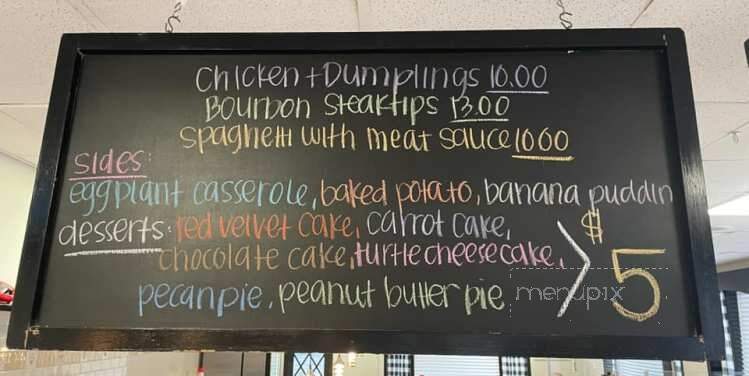 Chicken + Dumplings 10.00
Bourbon Steaktips 13.00
Spaghetti with meat sauce 10.00
Sides:
eggplant casserole, baked potato, banana puddin
desserts: red velvet cake, carrot cake,
chocolate cake, turtle cheesecake,
pecan pie, peanut butter pie
> $5
menupix